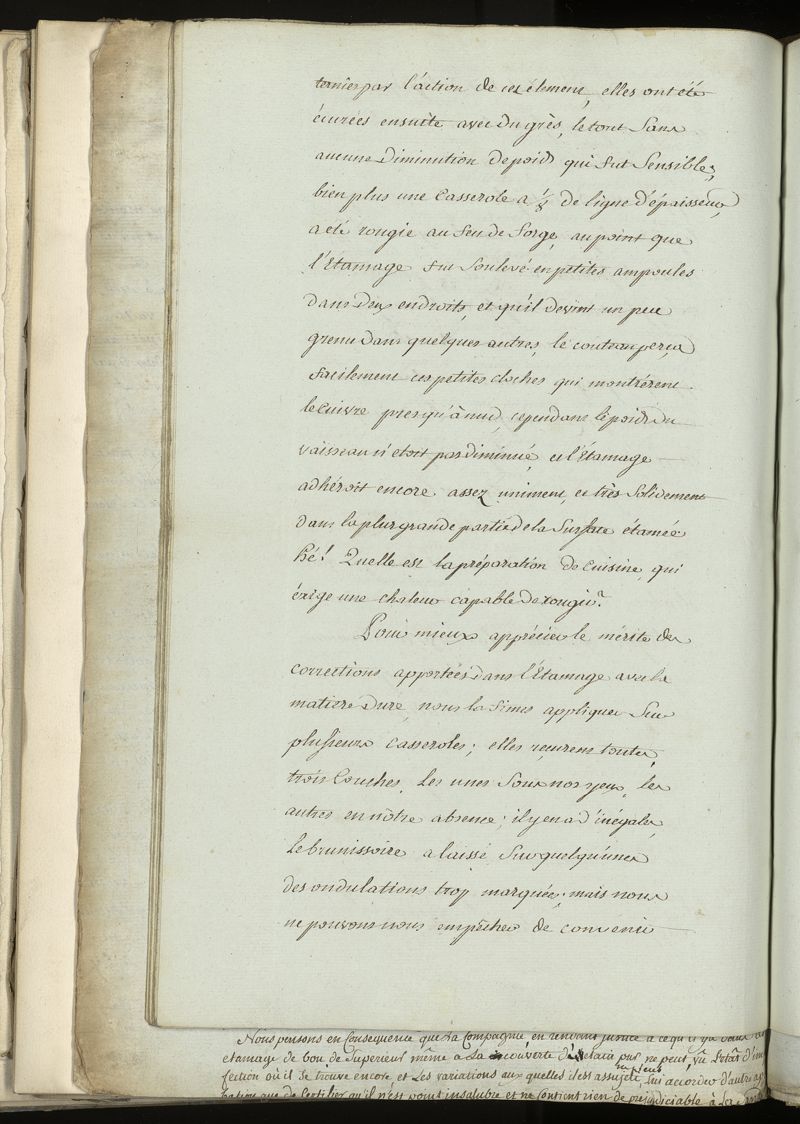 ternies par l'action de cet élement, elles ont été
écurées ensuite avec du grès, le tout sans
aucune Diminution de poids qui fut sensible,
bien plus une Casserole a 1/8 de ligne d'épaisseur
a été rougie au feu de forge, au point que
l'Etamage fut soulevé en petites ampoules
dans deux endroits, et qu'il devint un peu
grenu dans quelques autres, le couteau perça
facilement ces petites cloches qui montrérent
le cuivre presqu'à nud, cependant le poids du
vaisseau n'etoit pas diminué, et l'Etamage
adhéroit encore assez uniment, et très solidement
dans la plus grande partie de la surface étamée
hé! Quelle est la préparation de cuisine, qui
éxige une chaleur capable de rougir?
Pour mieux apprécier le mérite des
corrections apportées dans l'Etamage avec la
matiere dure, nous la fimes appliquer sur
plusieurs casseroles; elles reçurent toutes
trois Couches, les unes sous nos yeux, les
autres en nôtre absence; il y en a d'inégales,
le brunissoire a laissé sur quelqu'unes
des ondulations trop marquées, mais nous
ne pouvons nous empêcher de convenir
Nous pensons en Consequence que La Compagnie, en rendant justice a ce qu'il y a dans
etamage de bon de Superieur même a La découverte de l'etain pur ne peut, vû L'etat d'im
fection où il se trouve encore, et Les variations aux quelles il est assujeti, lui accorder d'autre ap
bation que de Certifier qu'il n'est point insalubre et ne contient rien de prejudiciable à La Santé